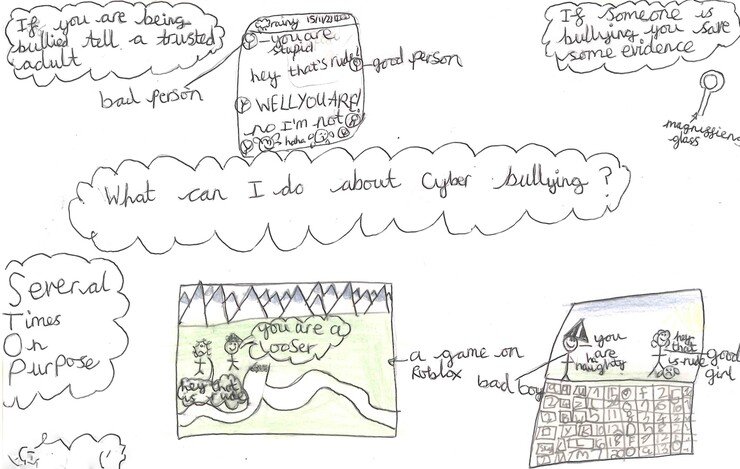 If you are being
bullied tell a trusted
adult
bad person
rainy
you are
stupid
hey that's rude!
good person
WELL YOU ARE!
no I'm not
haha
If someone is
bullying you save
some evidence
magnissfiens
glass
What can I do about Cyber bullying?
Several
Times
On
Purpose
you are a
looser
hey that
is rude
a game on
Roblox
bad boy
you
are
naughty!
hey
that
is rude
good
girl